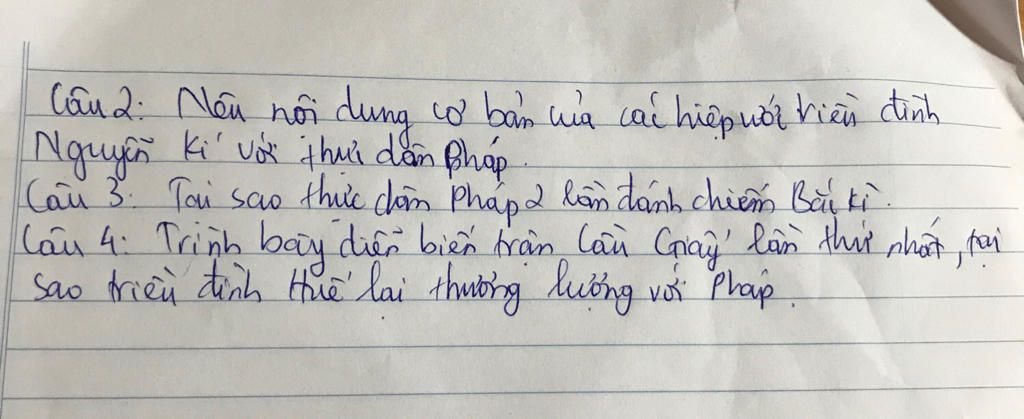 Câu 2: Nêu nội dung cơ bản của các hiệp ước triều đình
Nguyễn kí với thực dân Pháp.
Câu 3: Tại sao thực dân Pháp 2 lần đánh chiếm Bắc kì.
Câu 4: Trình bày diễn biến trận Cầu Giấy lần thứ nhất, tại
sao triều đình Huế lại thương lượng với Pháp.